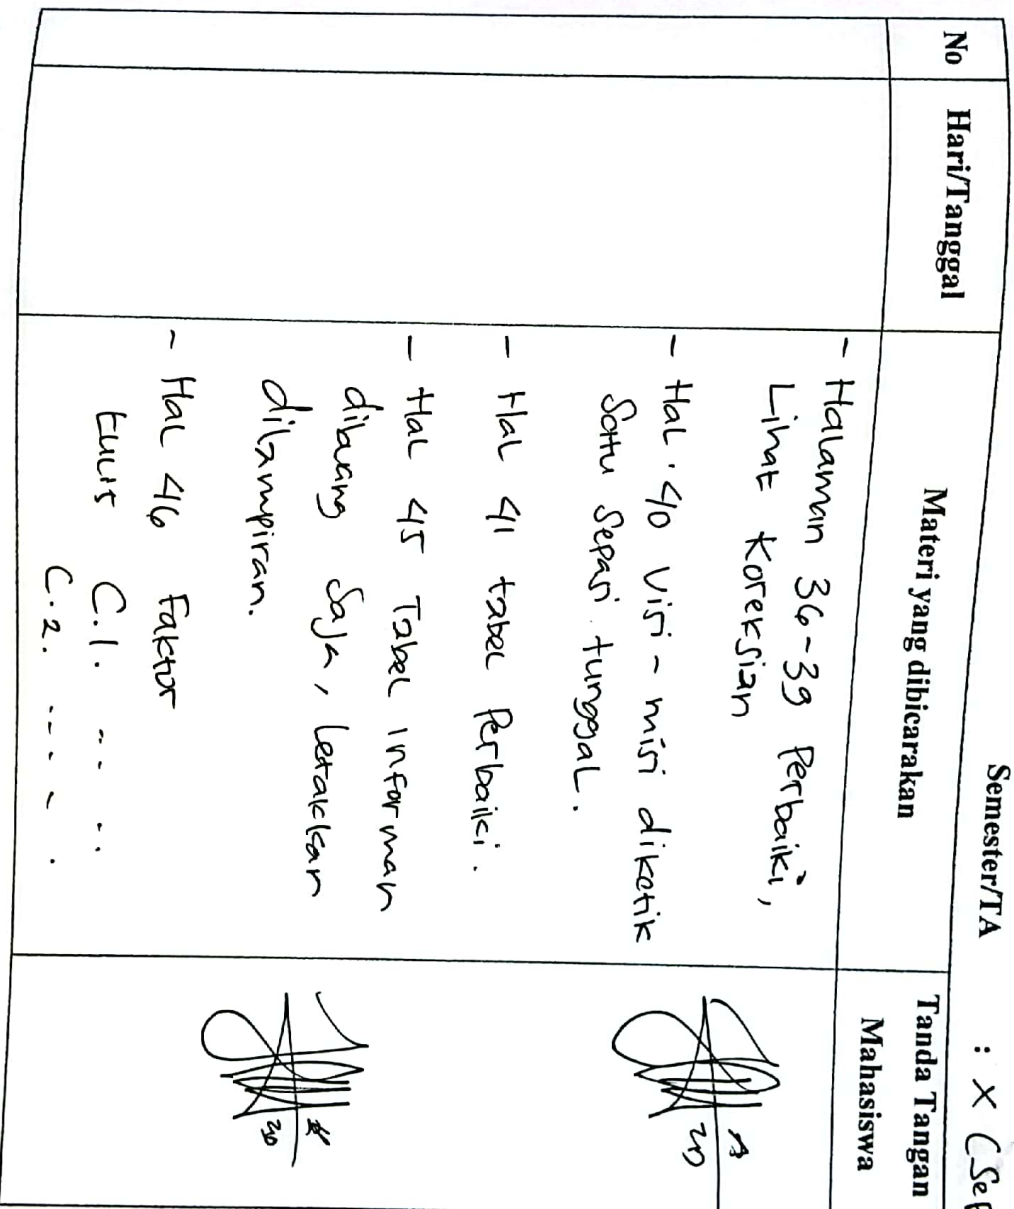 Semester/TA : X (Sep
No Hari/Tanggal Materi yang dibicarakan Tanda Tangan Mahasiswa
- Halaman 36-39 Perbaiki,
Lihat Koreksian
- Hal. 40 Visi - misi diketik
Satu Sepasi tunggal.
- Hal 41 tabel Perbaiki.
- Hal 45 Tabel informan
dibuang Saja, Letakkan
dilampiran.
- Hal 46 Faktor
tulis C.1. .. .. ..
C.2. .. .. . .